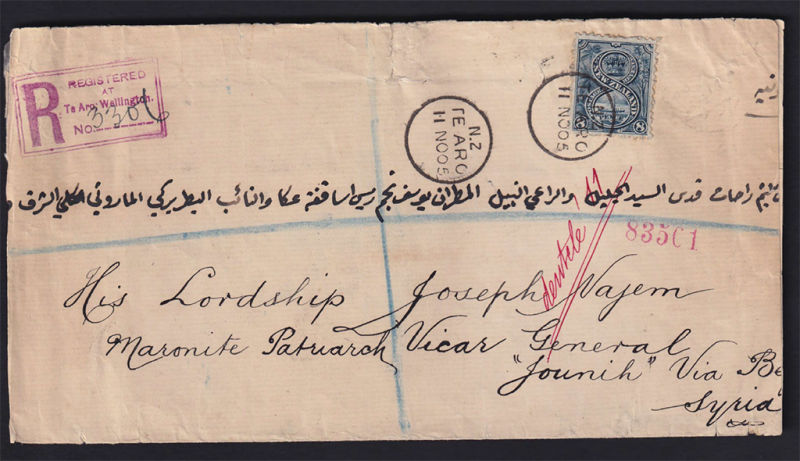 REGISTERED
AT
Te Aro, Wellington.
R No. 3306
N.Z
TE ARO
11 NO 05
NEW ZEALAND
ARO
11 NO 05
راحات قدس السيد الجليل والراعي النبيل المطران يوسف نجم رئيس اساقفة عكا والنائب البطريركي الماروني الكلي الشرف
83501
His Lordship Joseph Najem
Maronite Patriarch Vicar General
"Jounih" Via Be
Syria